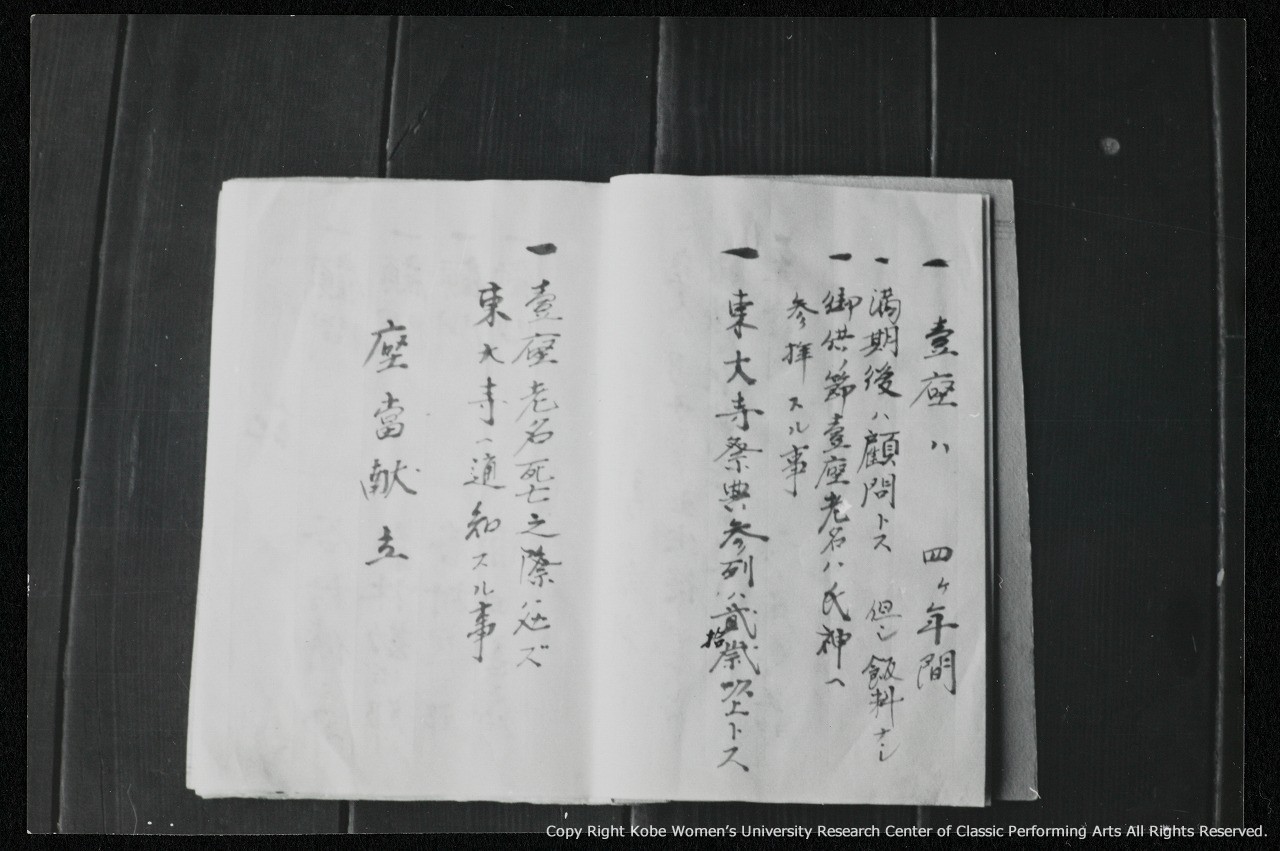 一 壹座ハ 四ヶ年間
一 満期後ハ顧問トス 但シ飯料ナシ
一 御供ノ節壹座老名ハ氏神ヘ
参拝スル事
一 東大寺祭典参列ハ貳拾歳以上トス
一 壹座老名死亡之際ハ必ズ
東大寺ヘ通知スル事
座當献立
Copy Right Kobe Women's University Research Center of Classic Performing Arts All Rights Reserved.